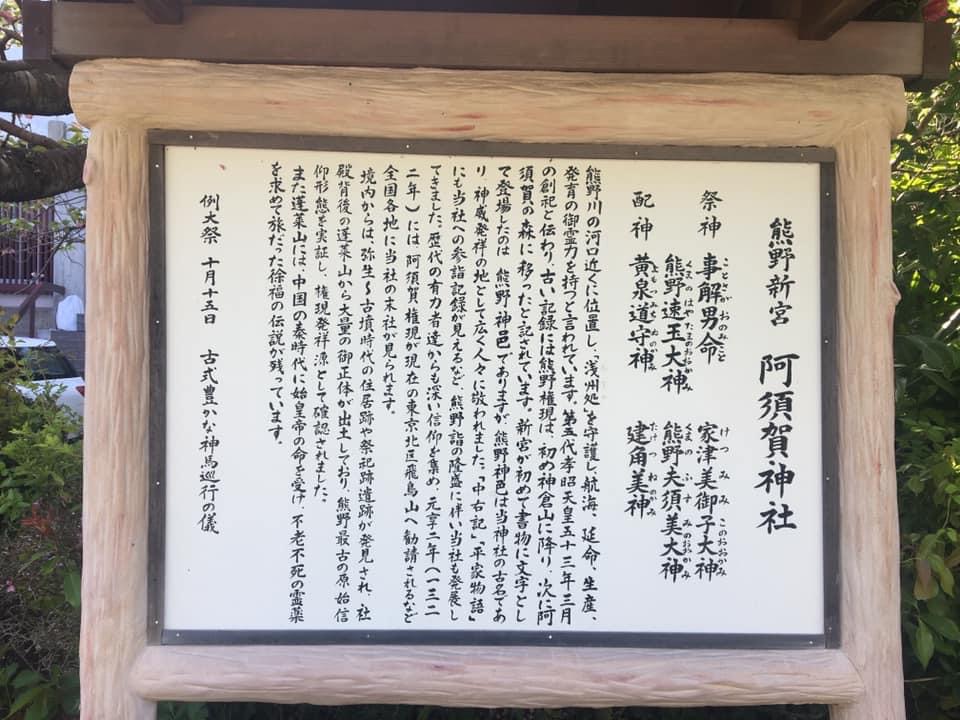 熊野新宮 阿須賀神社
祭神 事解男命 家津美御子大神
熊野速玉大神 熊野夫須美大神
配神 黄泉道守神 建角美神
熊野川の河口近くに位置し、「浅州処」を守護し、航海、延命、生産、
発育の御霊力を持つと言われています。第五代孝昭天皇五十三年三月
の創祀と伝わり、古い記録には熊野権現は、初め神倉山に降り、次に阿
須賀の森に移ったと記されています。新宮が初めて書物に文字とし
て登場したのは 熊野神邑でありますが、熊野神邑は当神社の古名であ
り、神威発祥の地として広く人々に敬われました。「中右記」「平家物語」
にも当社への参詣記録が見えるなど、熊野詣の隆盛に伴い当社も発展し
てきました。歴代の有力者達からも深い信仰を集め、元亨二年(一三二
二年)には阿須賀権現が現在の東京北区飛鳥山へ勧請されるなど
全国各地に当社の末社が見られます。
境内からは、弥生～古墳時代の住居跡や祭祀跡遺跡が発見され、社
殿背後の蓬莱山から大量の御正体が出土しており、熊野最古の原始信
仰形態を実証し、権現発祥源として確認されました。
また蓬莱山には、中国の秦時代に始皇帝の命を受け、不老不死の霊薬
を求めて旅だった徐福の伝説が残っています。
例大祭 十月十五日 古式豊かな神馬巡行の儀